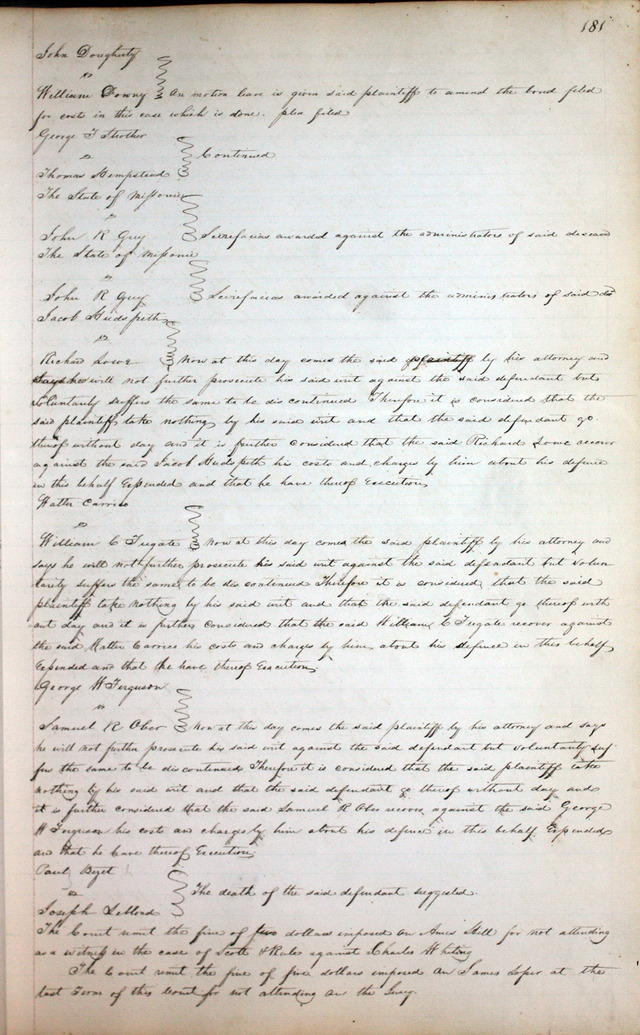 181
John Dougherty
vs
William Downy On motion leave is given said plaintiff to amend the bond filed
for cost in this case which is done. plea filed
George F Strother
vs Continued
Thomas Hempstead
The State of Missouri
vs
John R Guy Scirefacias awarded against the administrators of said deceased
The State of Missouri
vs
John R Guy Scirefacias awarded against the administrators of said decd
Jacob Hudspeth
vs
Richard Lowe Now at this day comes the said plaintiff by his attorney and
says he will not further prosecute his said writ against the said defendant but
voluntarily suffers the same to be dis continued Therefore it is considered that the
said plaintiff take nothing by his said writ and that the said defendant go
thereof without day and it is further considered that the said Richard Lowe recover
against the said Jacob Hudspeth his costs and charges by him about his defence
in this behalf Expended and that he have thereof Execution
Walter Carrico
vs
William C Fugate Now at this day comes the said plaintiff by his attorney and
says he will not further prosecute his said writ against the said defendant but volun
tarily suffers the same to be dis continued Therefore it is considered that the said
plaintiff take nothing by his said writ and that the said defendant go thereof with
out day and it is further considered that the said William C Fugate recover against
the said Walter Carrico his costs and charges by him about his defence in this behalf
Expended and that he have thereof Execution
George W Ferguson
vs
Samuel R Ober Now at this day comes the said plaintiff by his attorney and says
he will not further prosecute his said writ against the said defendant but voluntarily suf-
fers the same to be discontinued Therefore it is considered that the said plaintiff take
nothing by his said writ and that the said defendant go thereof without day and
it is further considered that the said Samuel R Ober recover against the said George
W Ferguson his costs and charges by him about his defence in this behalf Expended
and that he have thereof Execution
Paul Bizet
vs The death of the said defendant suggested.
Joseph Leblond
The Court remit the fine of five dollars imposed on Amos Still for not attending
as a witness in the case of Scott & Rule against Charles Whiting
The Court remit the fine of five dollars imposed on James Loper at the
last Term of this Court for not attending on the Jury.